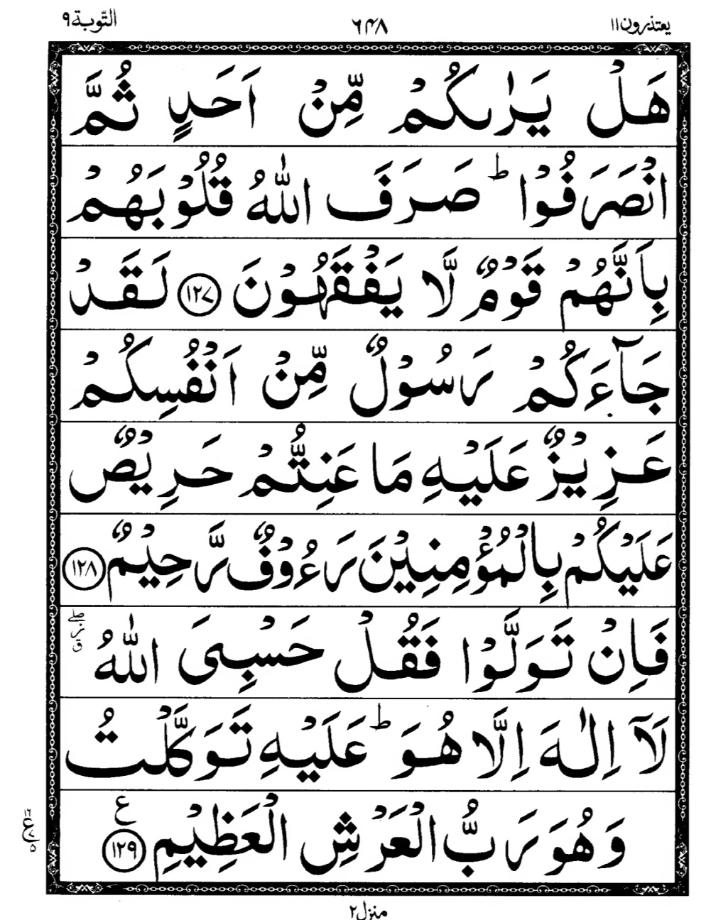 یعتذرون۱۱ ۶۴۸ التّوبة۹
هَلۡ یَرٰىكُمۡ مِّنۡ اَحَدٍ ثُمَّ
انۡصَرَفُوۡا ؕ صَرَفَ اللّٰهُ قُلُوۡبَهُمۡ
بِاَنَّهُمۡ قَوۡمٌ لَّا یَفۡقَهُوۡنَ ﴿۱۲۷﴾ لَقَدۡ
جَآءَكُمۡ رَسُوۡلٌ مِّنۡ اَنۡفُسِكُمۡ
عَزِیۡزٌ عَلَیۡهِ مَا عَنِتُّمۡ حَرِیۡصٌ
عَلَیۡكُمۡ بِالۡمُؤۡمِنِیۡنَ رَءُوۡفٌ رَّحِیۡمٌ ﴿۱۲۸﴾
فَاِنۡ تَوَلَّوۡا فَقُلۡ حَسۡبِیَ اللّٰهُ
لَاۤ اِلٰهَ اِلَّا هُوَ ؕ عَلَیۡهِ تَوَكَّلۡتُ
وَهُوَ رَبُّ الۡعَرۡشِ الۡعَظِیۡمِ ﴿۱۲۹﴾ ع
منزل۲